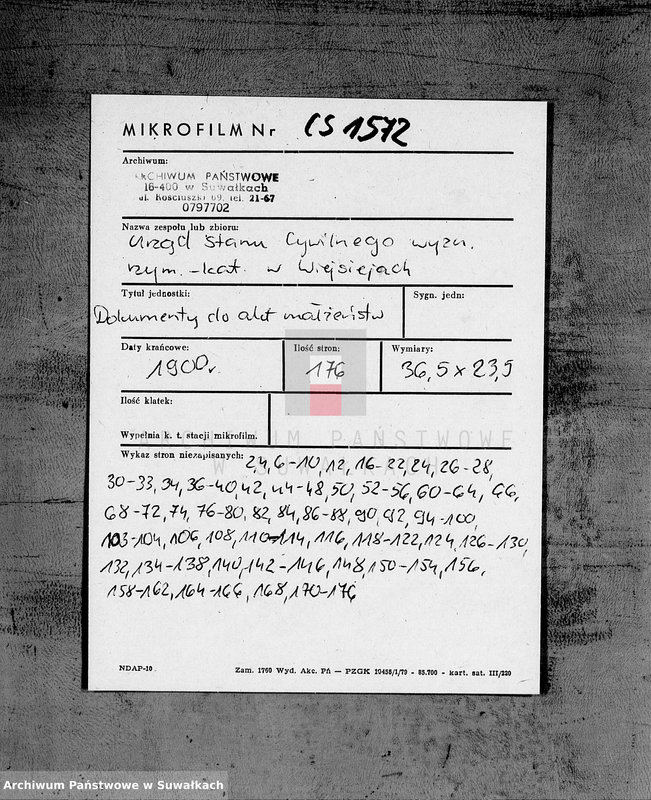 MIKROFILM Nr CS 1572
Archiwum:
ARCHIWUM PAŃSTWOWE
16-400 w Suwałkach
ul. Kościuszki 69, tel. 21-67
0797702
Nazwa zespołu lub zbioru:
Urząd Stanu Cywilnego wyzn.
rzym.-kat. w Wiejsiejach
Tytuł jednostki:
Sygn. jedn:
Dokumenty do akt małżeństw
Daty krańcowe:
Ilość stron:
Wymiary:
1900r.
176
36,5 x 23,5
Ilość klatek:
Wypełnia k. t. stacji mikrofilm.
ARCHIWUM PAŃSTWOWE
W SUWAŁKACH
Wykaz stron niezapisanych:
2,4,6-10,12,16-22,24,26-28,
30-33,34,36-40,42,44-48,50,52-56,60-64,66,
68-72,74,76-80,82,84,86-88,90,92,94-100,
103-104,106,108,110-114,116,118-122,124,126-130,
132,134-138,140,142-146,148,150-154,156,
158-162,164-166,168,170-176
NDAP-10
Zam. 1760 Wyd. Akc. PA — PZGK 19458/I/79 - 85.700 - kart. sat. III/220
Archiwum Państwowe w Suwałkach